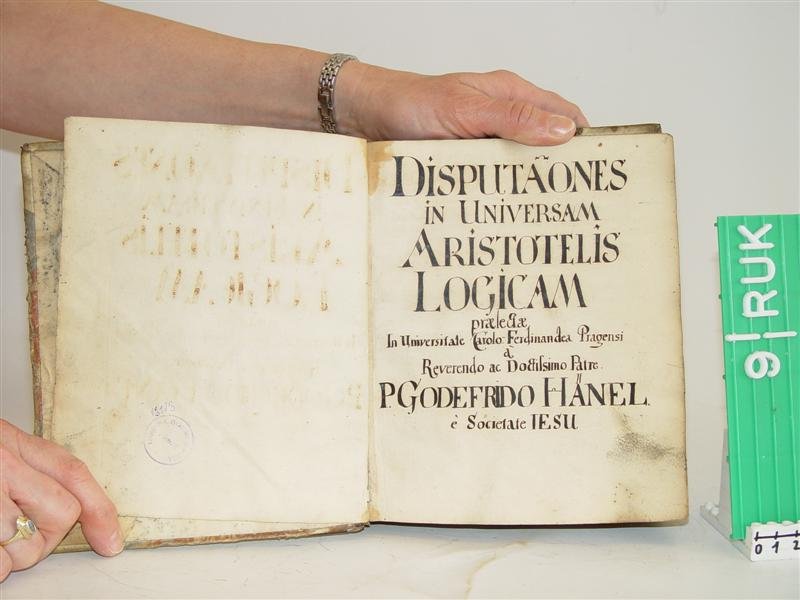 DISPUTAÕNES
IN UNIVERSAM
ARISTOTELIS
LOGICAM
prælectæ
In Universitate Carolo Ferdinandea Pragensi
â
Reverendo ac Doctissimo Patre.
P. GODEFRIDO HÄNEL.
è Societate IESU
9 RUK
0 1 2